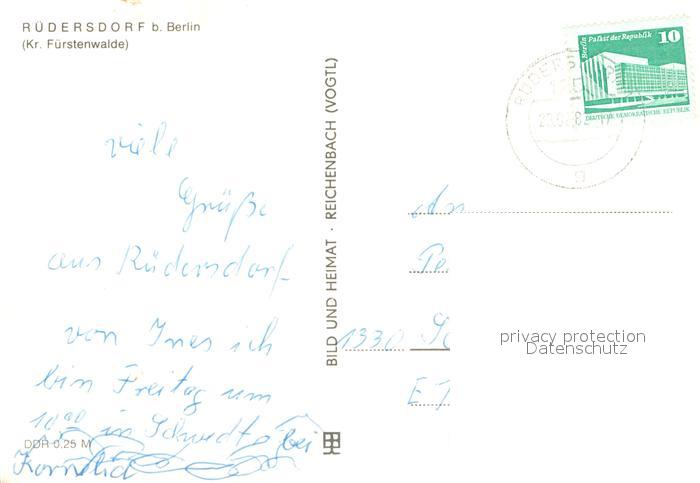 RÜDERSDORF b. Berlin
(Kr. Fürstenwalde)
viele
Grüße
aus Rüdersdorf
von Ines ich
bin Freitag um
10⁰⁰ in Schwedt bei
Kornelia
DDR 0,25 M
BILD UND HEIMAT · REICHENBACH (VOGTL)
Berlin Palast der Republik 10
DEUTSCHE DEMOKRATISCHE REPUBLIK
An
1330
privacy protection
Datenschutz